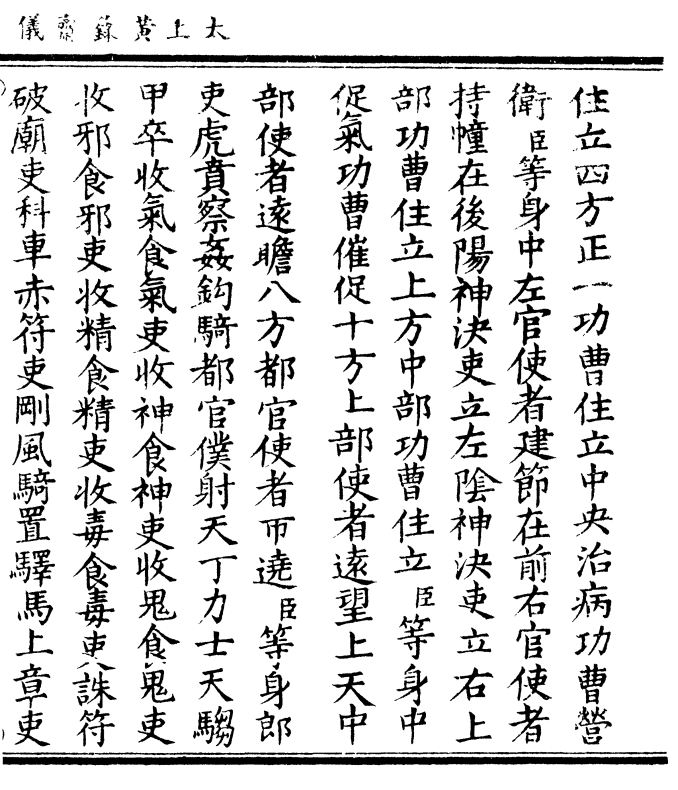 太上黃籙齋儀
住立四方正一功曹住立中央治病功曹營
衛臣等身中左官使者建節在前右官使者
持幢在後陽神決吏立左陰神決吏立右上
部功曹住立上方中部功曹住立臣等身中
促氣功曹催促十方上部使者遠望上天中
部使者遠瞻八方都官使者帀遶臣等身郎
吏虎賁察姦鈎騎都官僕射天丁力士天騶
甲卒收氣食氣吏收神食神吏收鬼食鬼吏
收邪食邪吏收精食精吏收毒食毒吏誅符
破廟吏科車赤符吏剛風騎置驛馬上章吏